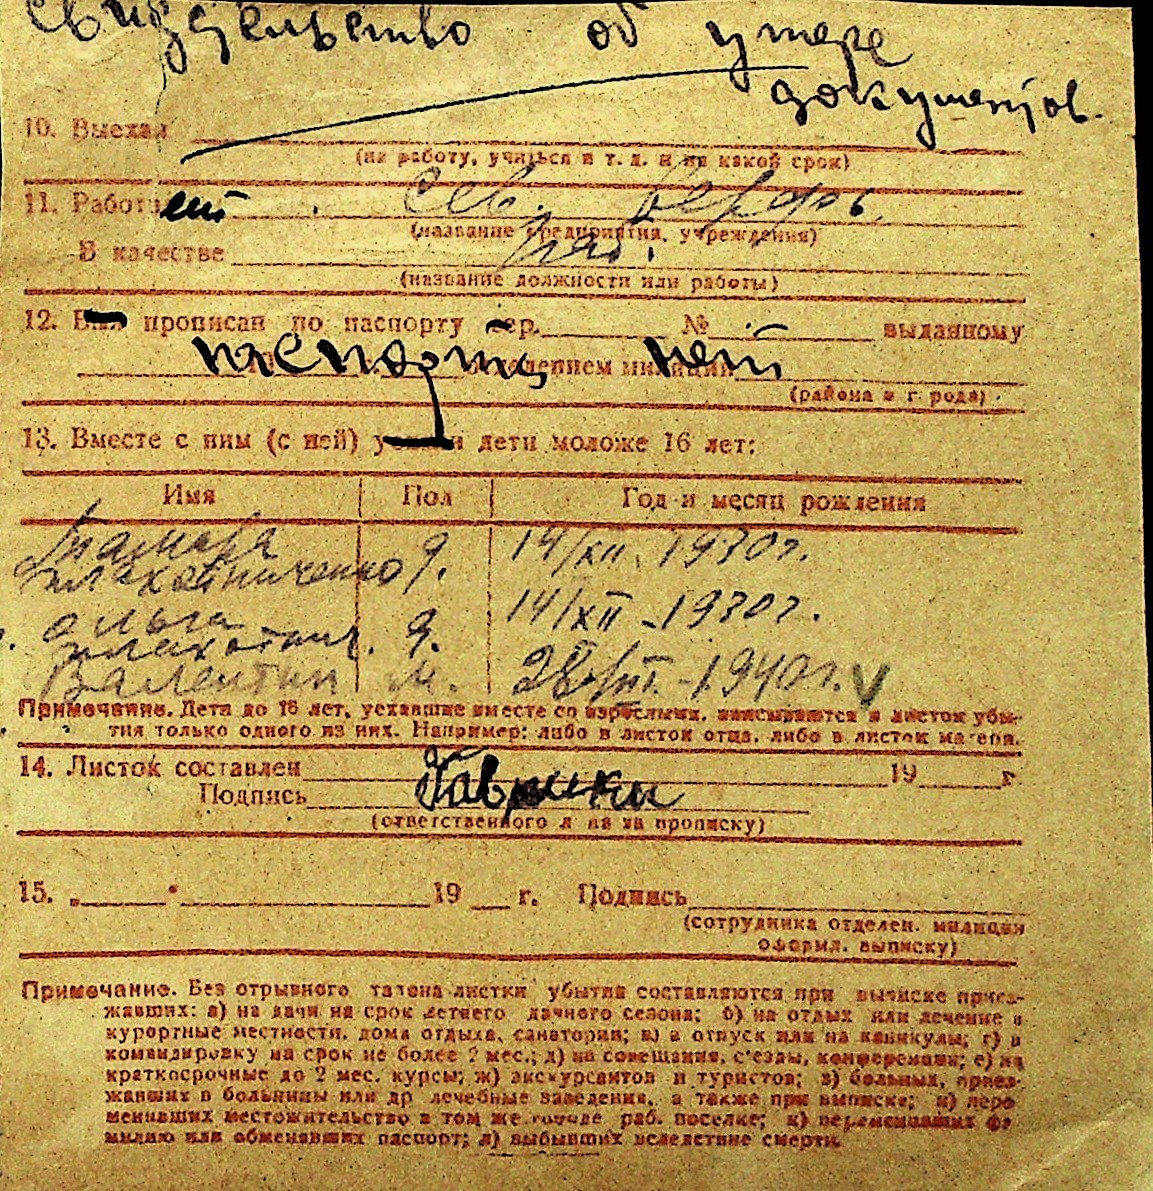 свидетельство об утере
документов.
10. Выехал
(на работу, учиться и т. д. и на какой срок)
11. Работает Сев. верфь.
(название предприятия, учреждения)
В качестве раб.
(название должности или работы)
12. Был прописан по паспорту сер. № выданному
паспорта нет
отделением милиции
(района и города)
13. Вместе с ним (с ней) дети моложе 16 лет:
Имя Пол Год и месяц рождения
Тамара
д. 14/XII. 1930г.
Ольга д. 14/XII - 1930г.
Валентин м. 28/VII. - 1940г. V
Примечание. Дети до 16 лет, уехавшие вместе со взрослыми, вписываются в листок убы-
тия только одного из них. Например: либо в листок отца, либо в листок матери.
14. Листок составлен 19 г
Подпись
(ответственного л на за прописку)
15. „ " 19 г. Подпись
(сотрудника отделен. милиции
оформл. выписку)
Примечание. Без отрывного талона листки убытия составляются при выписке приез-
жавших: а) на дачи на срок летнего дачного сезона; б) на отдых или лечение в
курортные местности, дома отдыха, санатории; в) в отпуск или на каникулы; г) в
командировку на срок не более 2 мес.; д) на совещания, с'езды, конференции; е) на
краткосрочные до 2 мес. курсы; ж) экскурсантов и туристов; з) больных, приез-
жавших в больницы или др лечебные заведения, а также при выписке; и) пере
менивших местожительство в том же городе раб. поселке; к) переменивших фа
милию или обменявших паспорт; л) выбывших вследствие смерти.